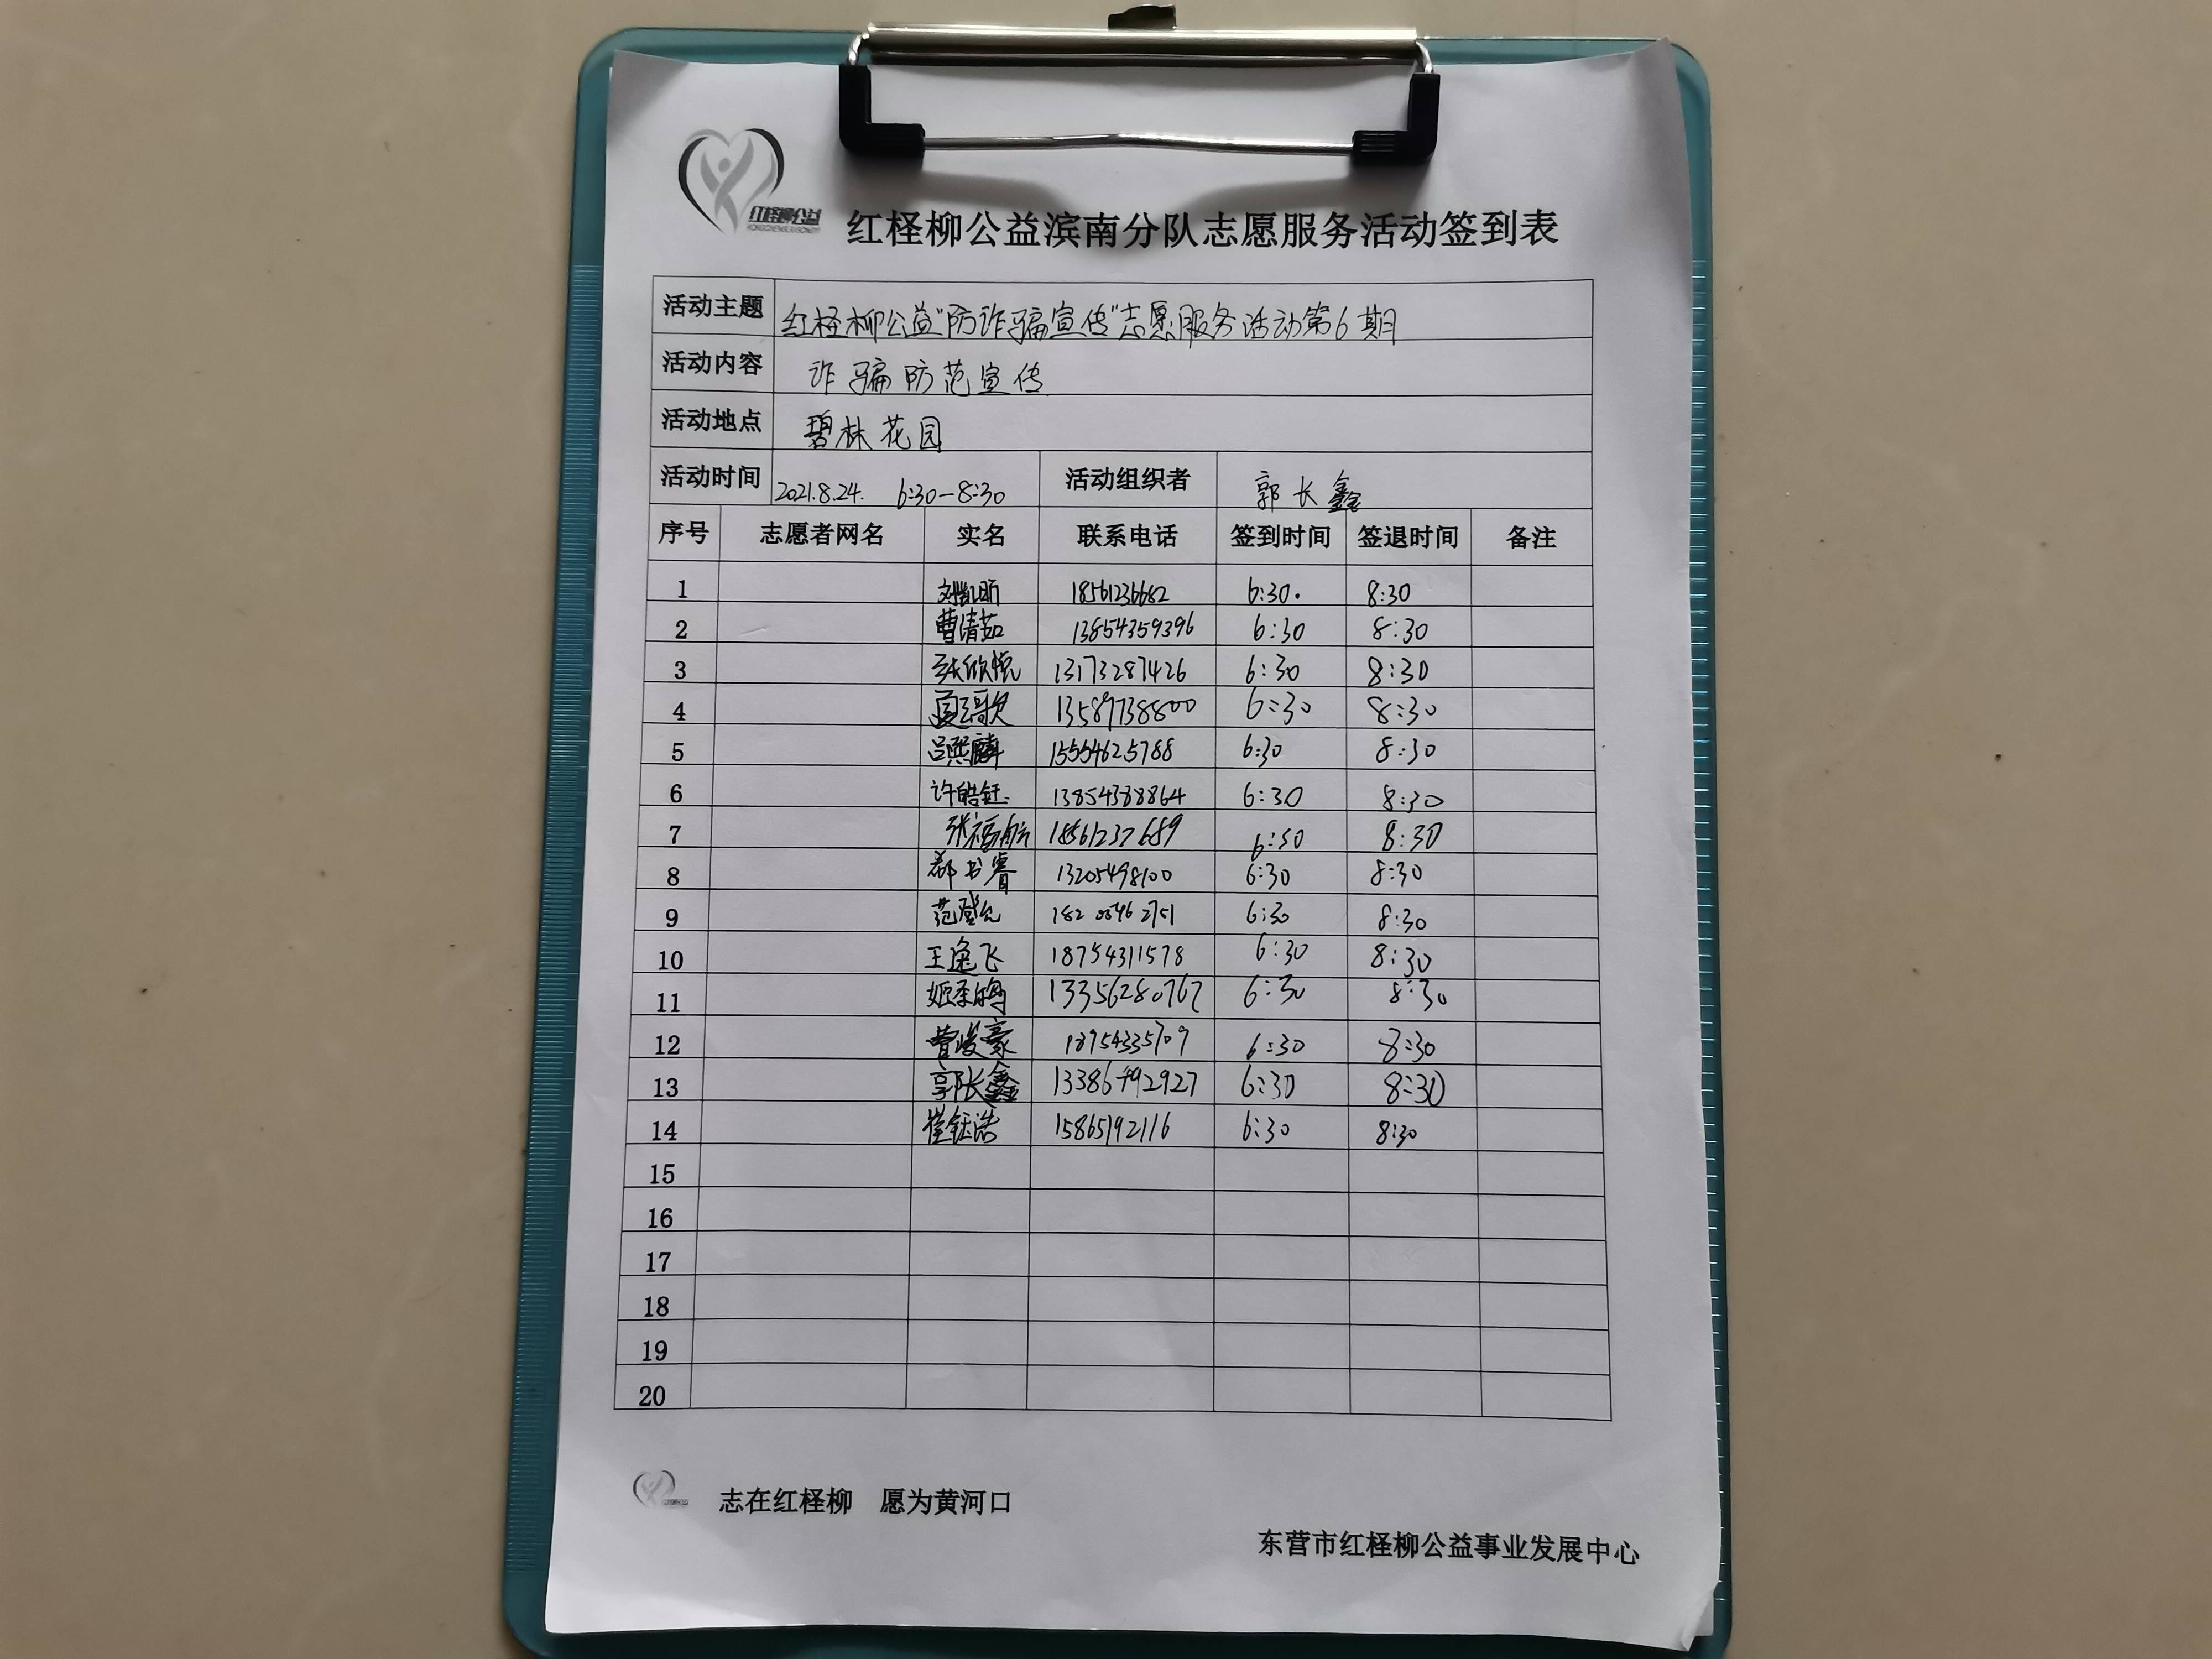 红柽柳公益
红柽柳公益滨南分队志愿服务活动签到表
活动主题 红柽柳公益"防诈骗宣传"志愿服务活动第6期
活动内容 诈骗防范宣传
活动地点 碧林花园
活动时间 2021.8.24. 6:30-8:30 活动组织者 郭长鑫
序号 志愿者网名 实名 联系电话 签到时间 签退时间 备注
1 18561236682 6:30. 8:30
2 曹清茹 13854359396 6:30 8:30
3 张欣悦 13173287426 6:30 8:30
4 13589738800 6:30 8:30
5 吕熙麟 15554625788 6:30 8:30
6 许皓钰 13854388864 6:30 8:30
7 张福航 18561237689 6:30 8:30
8 郝书睿 13205498100 6:30 8:30
9 范登 182 0546 2751 6:30 8:30
10 王逸飞 18754311578 6:30 8:30
11 13356280767 6:30 8:30
12 曹峻豪 18954335709 6:30 8:30
13 郭长鑫 13386492927 6:30 8:30
14 崔钰浩 15865192116 6:30 8:30
15
16
17
18
19
20
志在红柽柳 愿为黄河口
东营市红柽柳公益事业发展中心